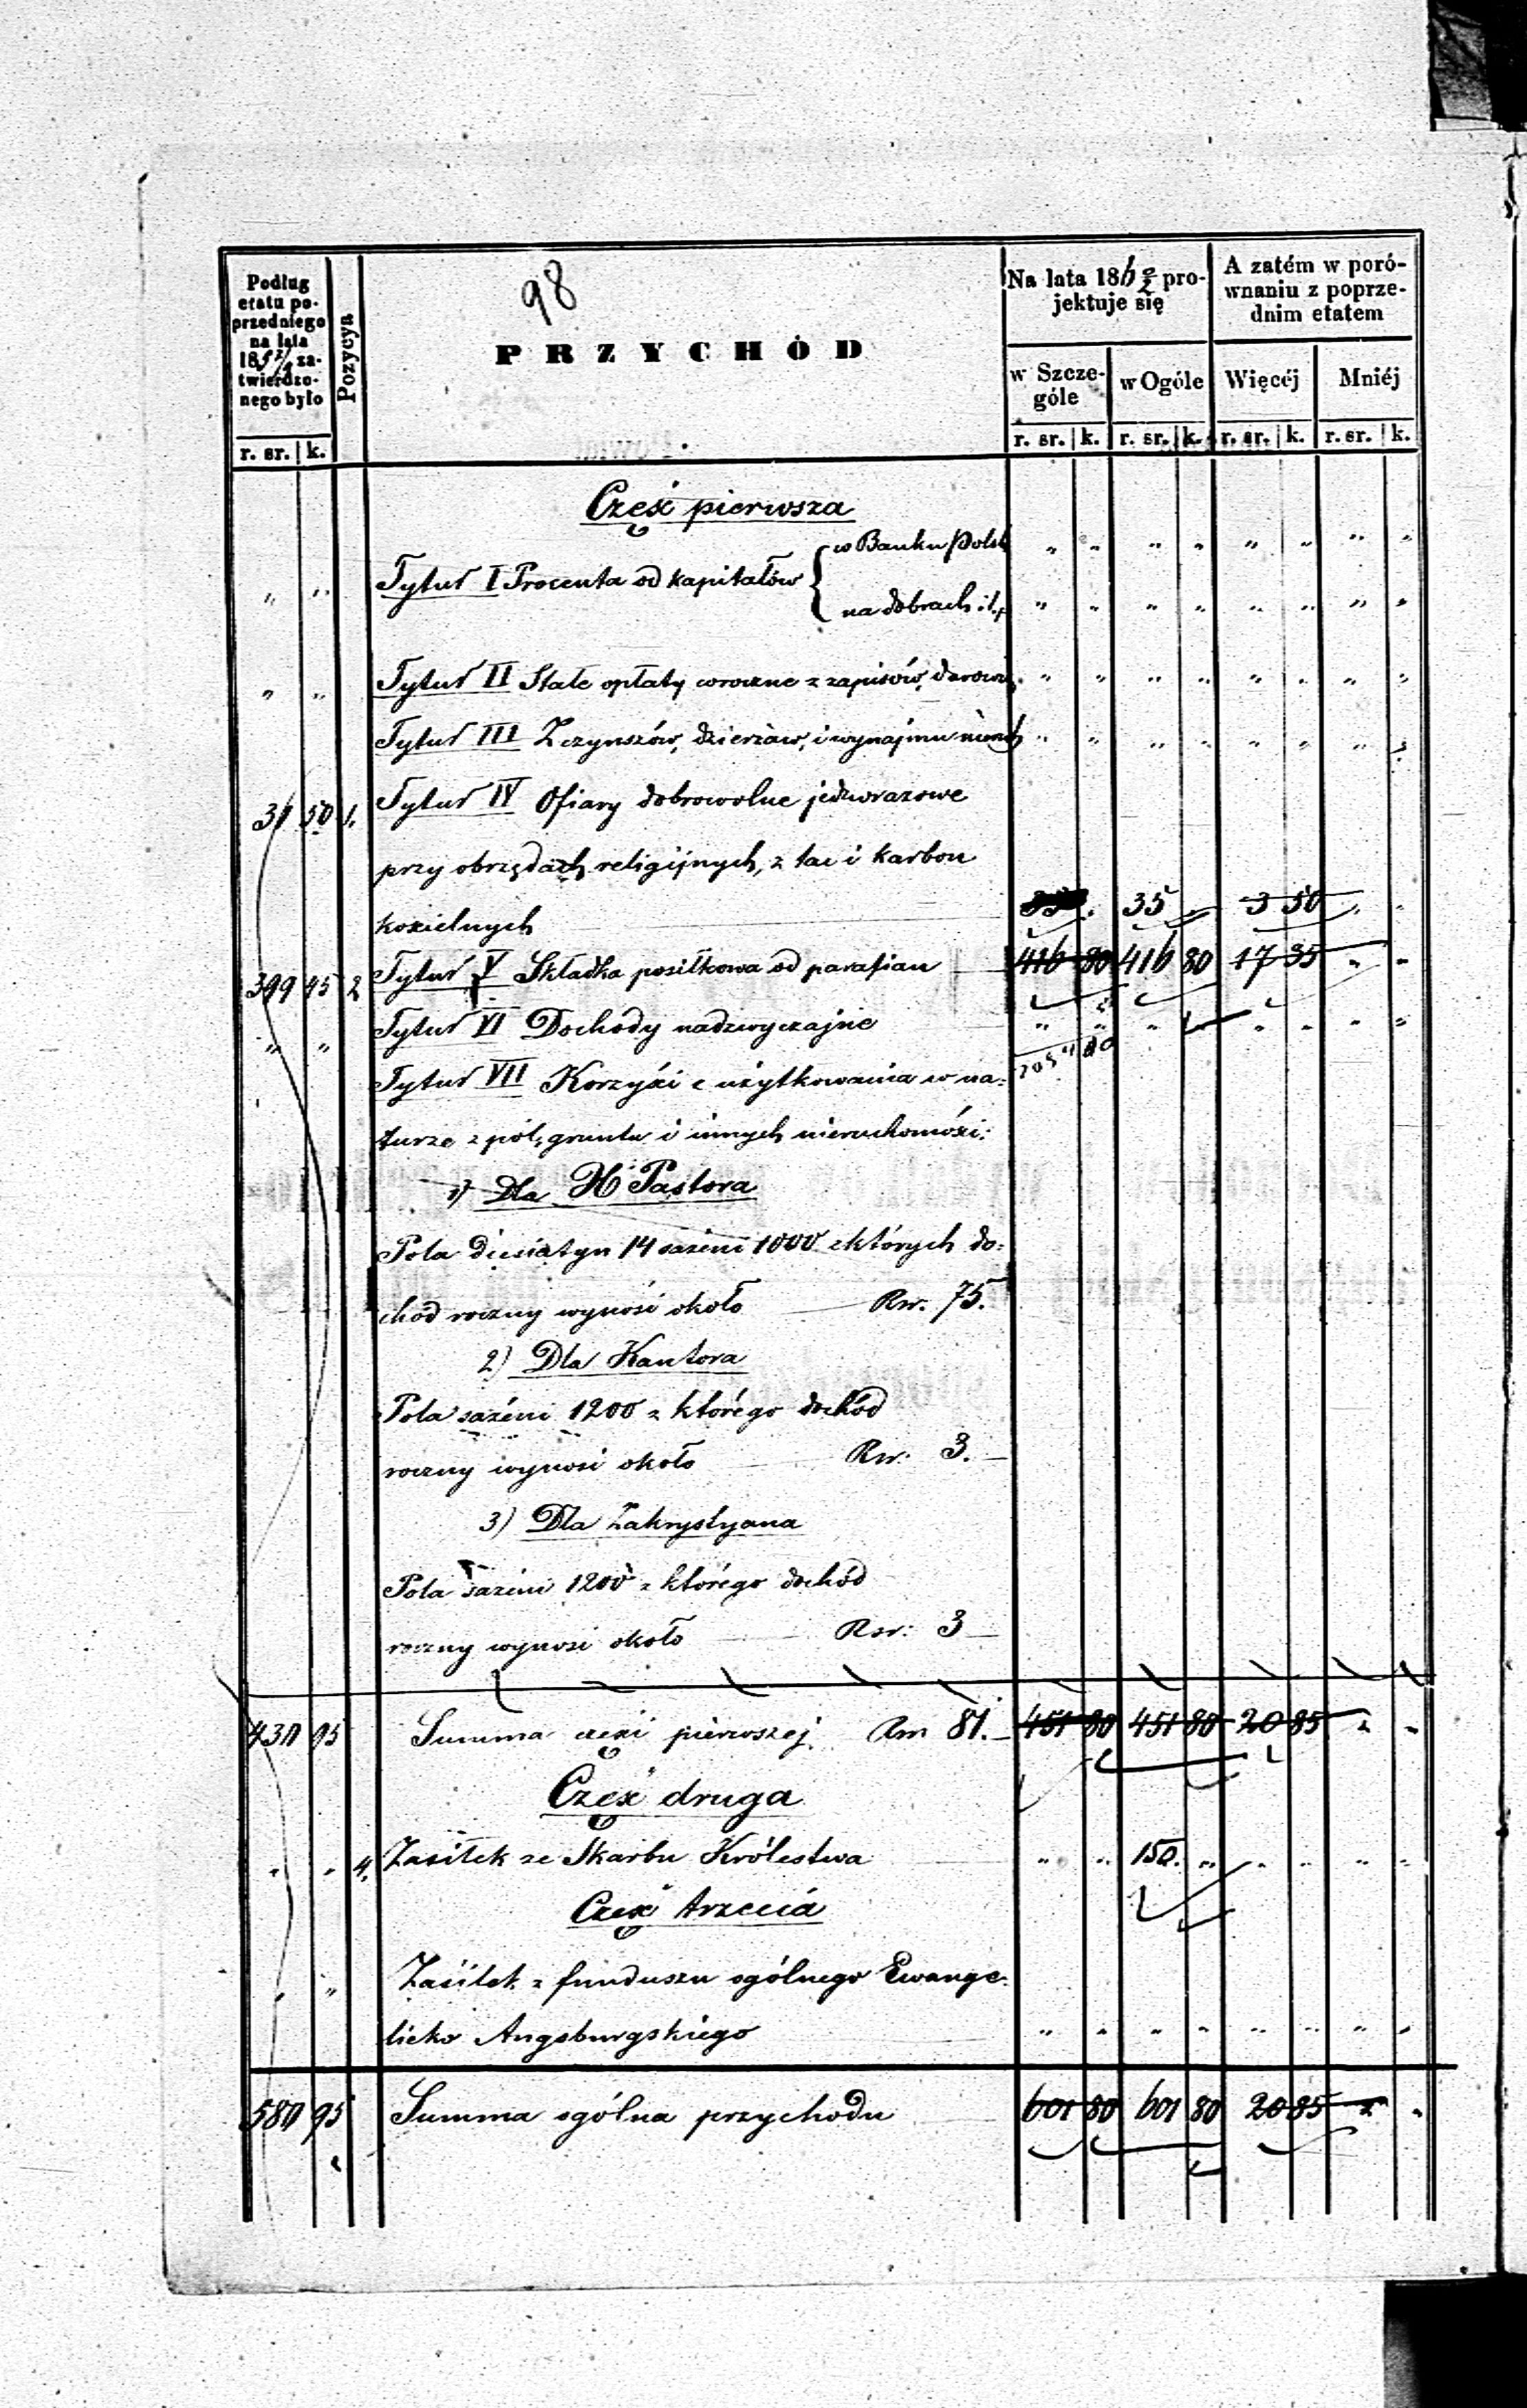 98
Podług etatu poprzedniego na lata 185 zatwierdzonego było
Pozycya
PRZYCHÓD
Na lata 186 0/2 projektuje się
A zatém w porównaniu z poprzednim etatem
w Szczególe
w Ogóle
Więcéj
Mniéj
r. sr. k. r. sr. k. r. sr. k. r. sr. k. r. sr. k.
Część pierwsza
" " Tytuł I Procenta od kapitałów { w Banku Polsk " " " " " " " "
na dobrach i t.p " " " " " " " "
" " Tytuł II Stałe opłaty coroczne z zapisów, darowiz. " " " " " " " "
Tytuł III Z czynszów, dzierżaw, i wynajmu " " " " " " " "
31 50 1. Tytuł IV Ofiary dobrowolne jednorazowe
przy obrzędach religijnych, z tac i karbon
kościelnych 35 . 35 . 3 50 " "
399 45 2 Tytuł V Składka posiłkowa od parafian 416 80 416 80 17 35 " "
" " Tytuł VI Dochody nadzwyczajne " " " " " " " "
Tytuł VII Korzyści z użytkowania w na-
turze z pól, gruntu i innych nieruchomości:
1) Dla X Pastora
Pola diesiatyn 14 sażeni 1000 z których do-
chód roczny wynosi około Rsr. 75.
2) Dla Kantora
Pola sażeni 1200 z którego dochód
roczny wynosi około Rsr: 3.
3) Dla Zakrystyana
Pola sażeni 1200 z którego dochód
roczny wynosi około Rsr: 3
430 95 Summa części pierwszej Rsr 81. 451 80 451 80 20 85 " "
Część druga
" " 4. Zasiłek ze Skarbu Królestwa " " 150. " " " " "
Część trzecia
" " Zasiłek z funduszu ogólnego Ewange-
licko Augsburgskiego " " " " " " " "
580 95 Summa ogólna przychodu 601 80 601 80 20 85 " "